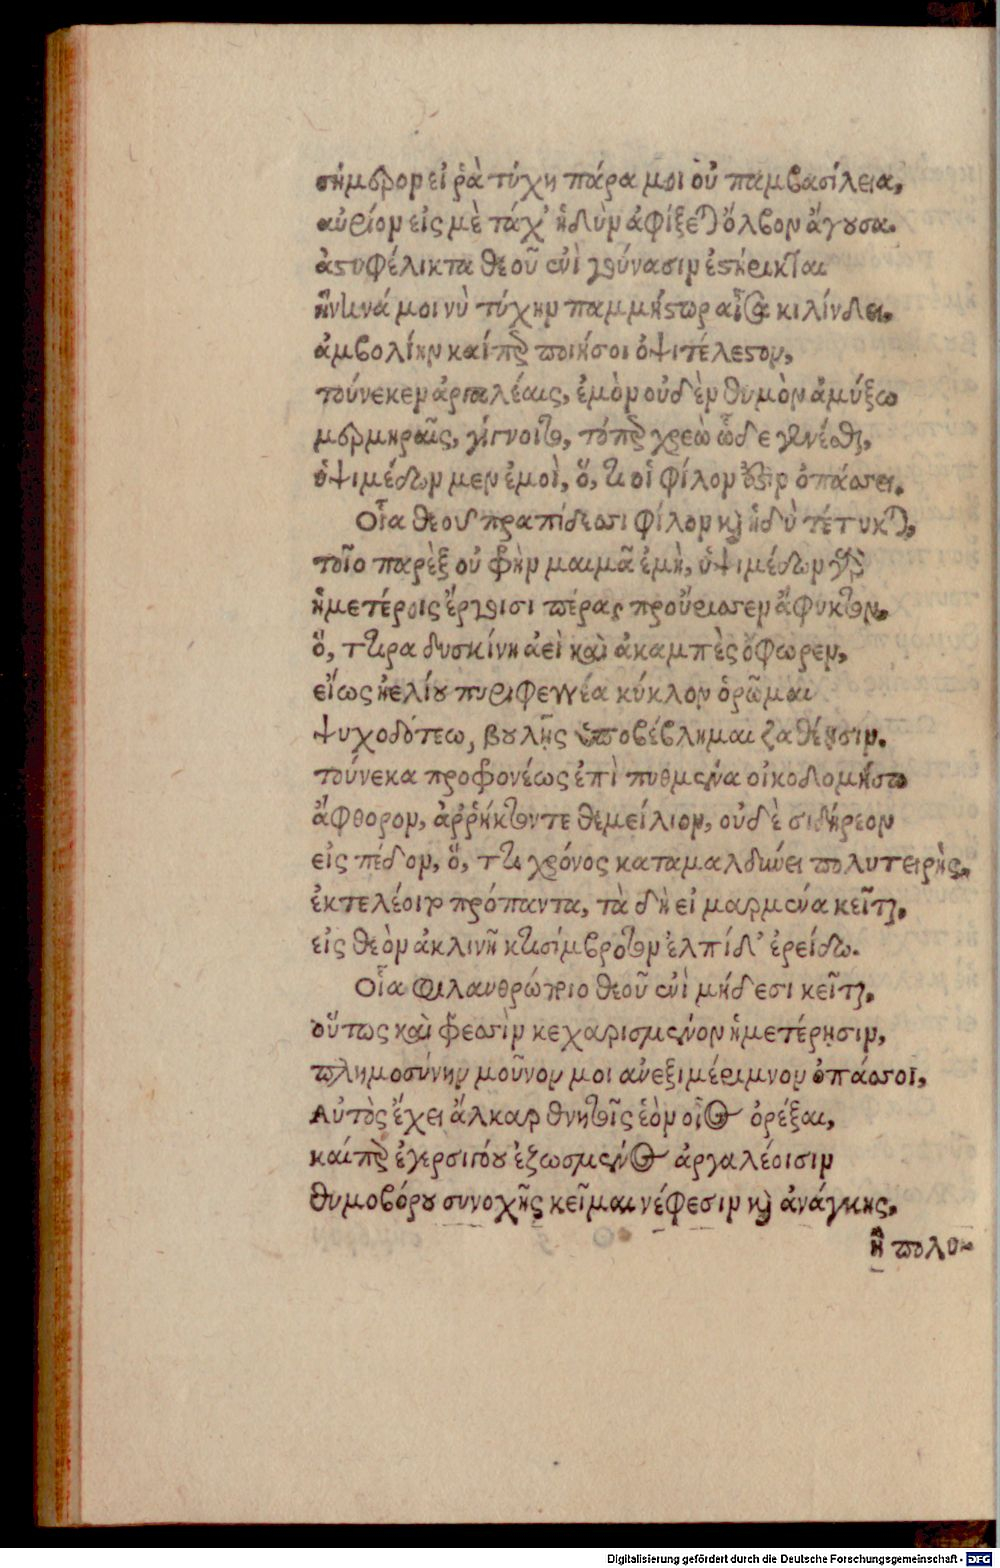 σήμερον εἰ ῥὰ τύχη πάρα μοι οὐ παμβασίλεια,
αὐρίον εἰς μὲ τάχ' ἡδὺν ἀφίξεται ὄλβον ἄγουσα.
ἀστυφέλικτα θεοῦ ἐνὶ γούνασιν ἐστήρικται
ἥντινά μοι νὺ τύχην παμμήστωρ κιλίνδει,
ἀμβολίην καίπερ ποιήσοι ὀψιτέλεστον,
τούνεκεν ἀρπαλέαις, ἐμὸν οὐδὲν θυμὸν ἀμύξω
μερμηραῖς, γίγνοιτο, τόπερ χρεὼ ὧδε γενέσθαι,
ὑψιμέδων μεν ἐμοὶ, ὅ, τι οἱ φίλον ὀπάσσει.
Οἷα θεοῦ πραπίδεσσι φίλον καὶ ἡδὺ τέτυκται,
τοῖο παρὲξ οὐ φὴν μαιμᾶ ἐμὴ, ὑψιμέδων γὰρ
ἡμετέροις ἔργοισι πέρας προὔριασεν ἄφυκτον,
ὅ, ττι ῥα δυσκίνη ἀεὶ καὶ ἀκαμπὲς ὄφωρεν,
εἵως ἠελίου πυριφεγγέα κύκλον ὁρῶμαι
ψυχοδότεω, βουλῆς ὑποβέβλημαι ζαθέησιν.
τούνεκα προφονέως ἐπὶ πυθμένα οἰκοδομήσω
ἄφθορον, ἀῤῥήκτοντε θεμείλιον, οὐδὲ σιδήρεον
εἰς πέδον, ὅ, ττι χρόνος καταμαλδύνει πολυτειρὴς,
ἐκτελέοιν πρόπαντα, τὰ δὴ εἱμαρμένα κεῖται.
εἰς θεὸν ἀκλινῆ κτισίμβροτον ἐλπίδ' ἐρείδω.
Οἷα φιλανθρώποιο θεοῦ ἐνὶ μήδεσι κεῖται.
οὕτως καὶ φρεσὶν κεχαρισμένον ἡμετέρῃσιν,
τλημοσύνην μοῦνον μοι ἀνεξιμέριμνον ὀπάσσοι,
Αὐτὸς ἔχει ἄλκαρ θνητοῖς ἑὸν οἶος ὀρέξαι,
καίπερ ἐγερσινόου ἐξωσμένος ἀργαλέοισιν
θυμοβόρου συνοχῆς κεῖμαι νέφεσιν καὶ ἀνάγκης,
ἢ πολυ-
Digitalisierung gefördert durch die Deutsche Forschungsgemeinschaft - DFG